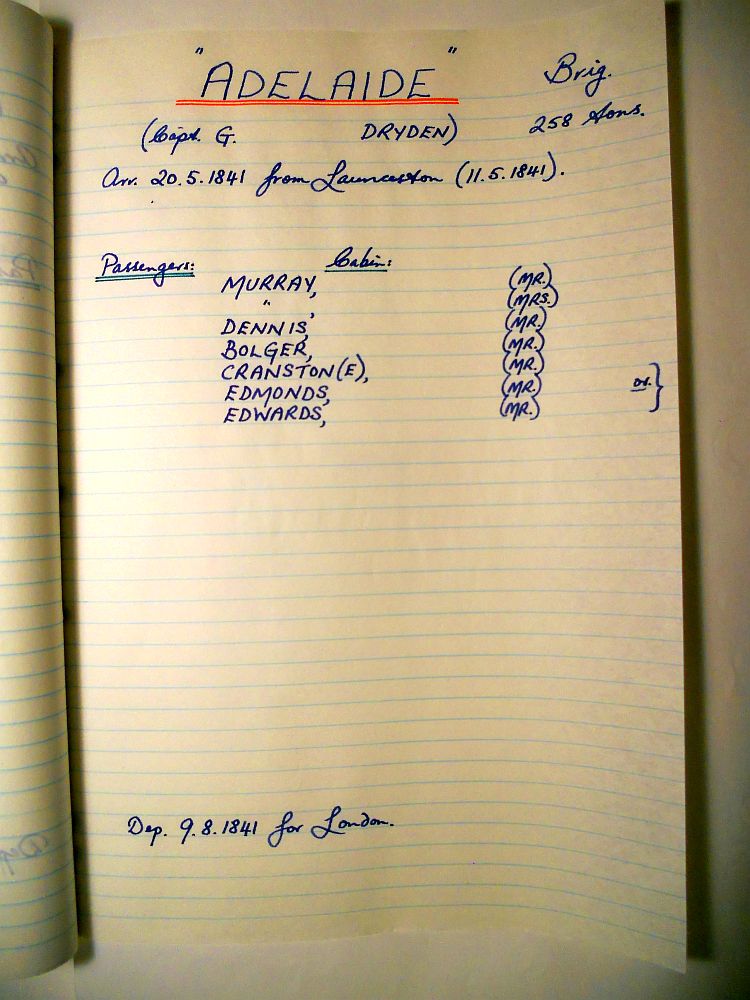 "ADELAIDE" Brig.
(Capt. G. DRYDEN) 258 tons.
Arr. 20.5.1841 from Launceston (11.5.1841).
Passengers: Cabin:
MURRAY, (MR.)
" , (MRS.)
DENNIS, (MR.)
BOLGER, (MR.)
CRANSTON(E), (MR.)
EDMONDS, (MR.) or. }
EDWARDS, (MR.)
Dep. 9.8.1841 for London.